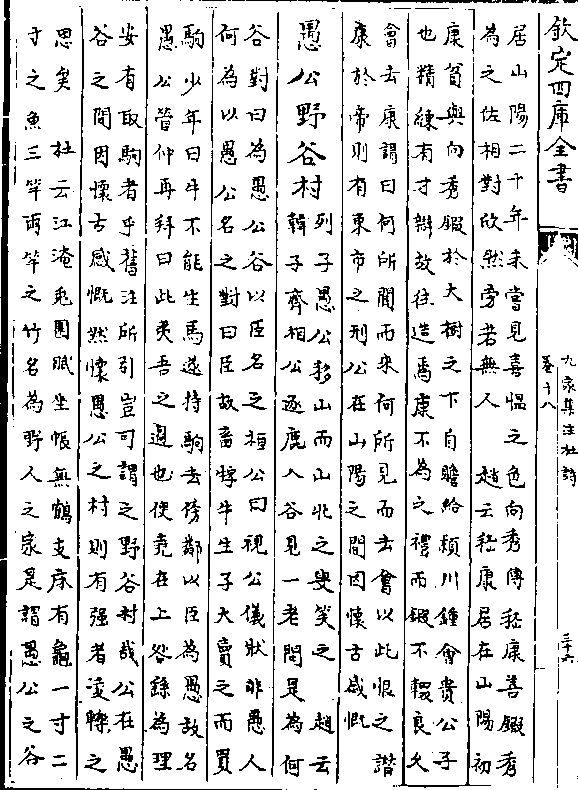 欽定四庫全書
居山陽二十年未嘗見喜愠之色向秀傳嵇康善鍛秀
為之佐相對欣然旁若無人　趙云嵇康居在山陽初
康貧與向秀鍛於大樹之下自贍給潁川鍾會貴公子
也精練有才辯故往造焉康不為之禮而鍛不輟良久
會去康謂曰何所聞而來何所見而去會以此恨之譛
康於帝則有東市之刑公在山陽之間因懷古感慨
愚公野谷村
列子愚公移山而山北之叟笑之　趙云
韓子齊桓公逐鹿入谷見一老問是為何
谷對曰為愚公谷以臣名之桓公曰視公儀狀非愚人
何為以愚公名之對曰臣故畜牸牛生子大賣之而買
駒少年曰牛不能生馬遂持駒去傍鄰以臣為愚故名
愚公管仲再拜曰此夷吾之過也使堯在上咎繇為理
安有取駒者乎舊注所引豈可謂之野谷村哉公在愚
谷之間因懷古感慨然懷愚公之村則有强者凌轢之
思矣　杜云江淹兎園賦坐帳無鶴支床有龜一寸二
寸之魚三竿兩竿之竹名為野人之家是謂愚公之谷
九家集注杜詩
卷十八
三十六